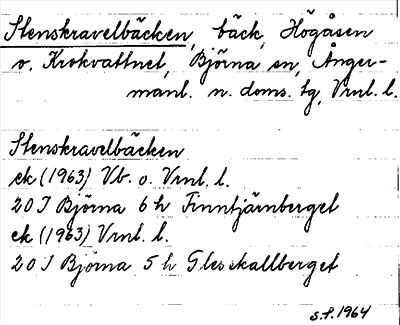 Stenskravelbäcken, bäck, Högåsen
o. Krokvattnet, Björna sn, Ånger-
manl. n. doms. tg, Vrnl. l.
Stenskravelbäcken
ek (1963) Vb. o. Vrnl. l.
20 J Björna 6 h Finntjärnberget
ek (1963) Vrnl. l.
20 J Björna 5 h Glesskallberget
S.F. 1964